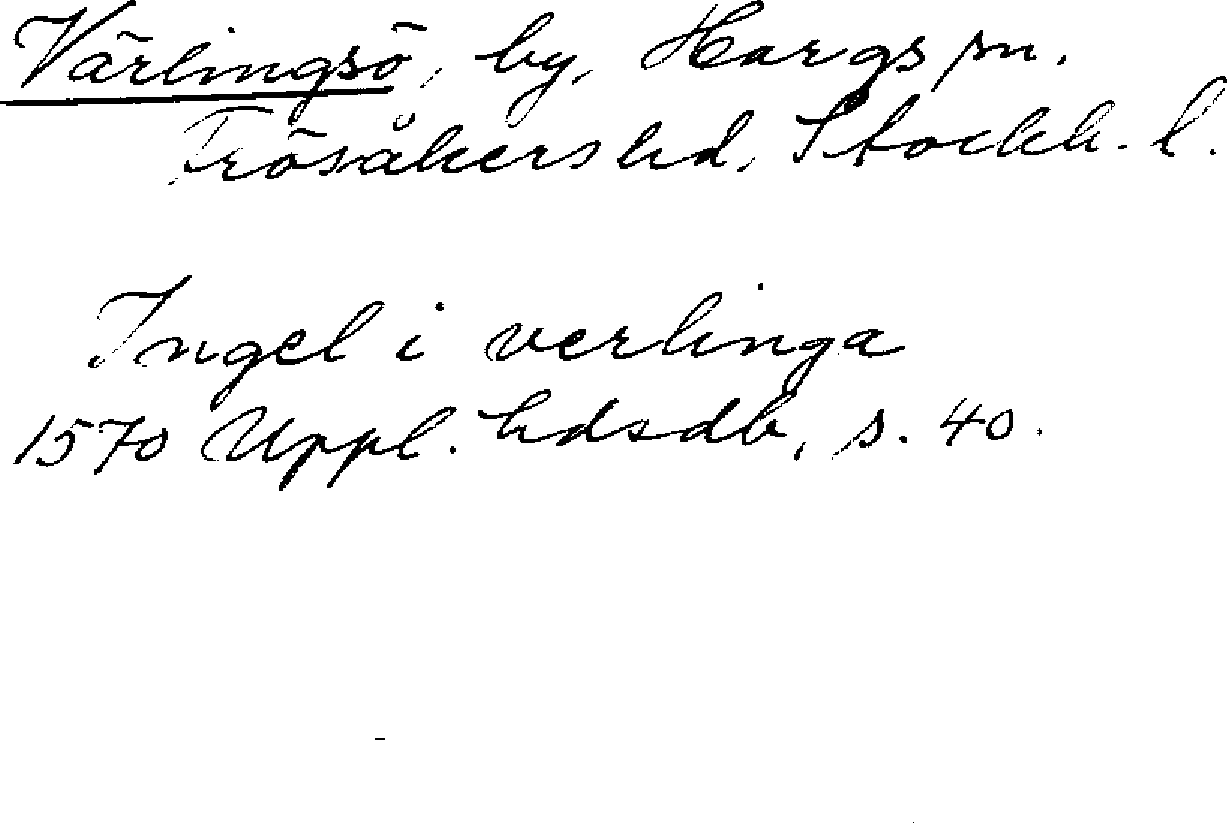 Värlingsö, by, Hargs sn.
Frösåkers hd, Stockh. l.
Ingel i verlinga
1570 Uppl. hdsdb, s. 40.